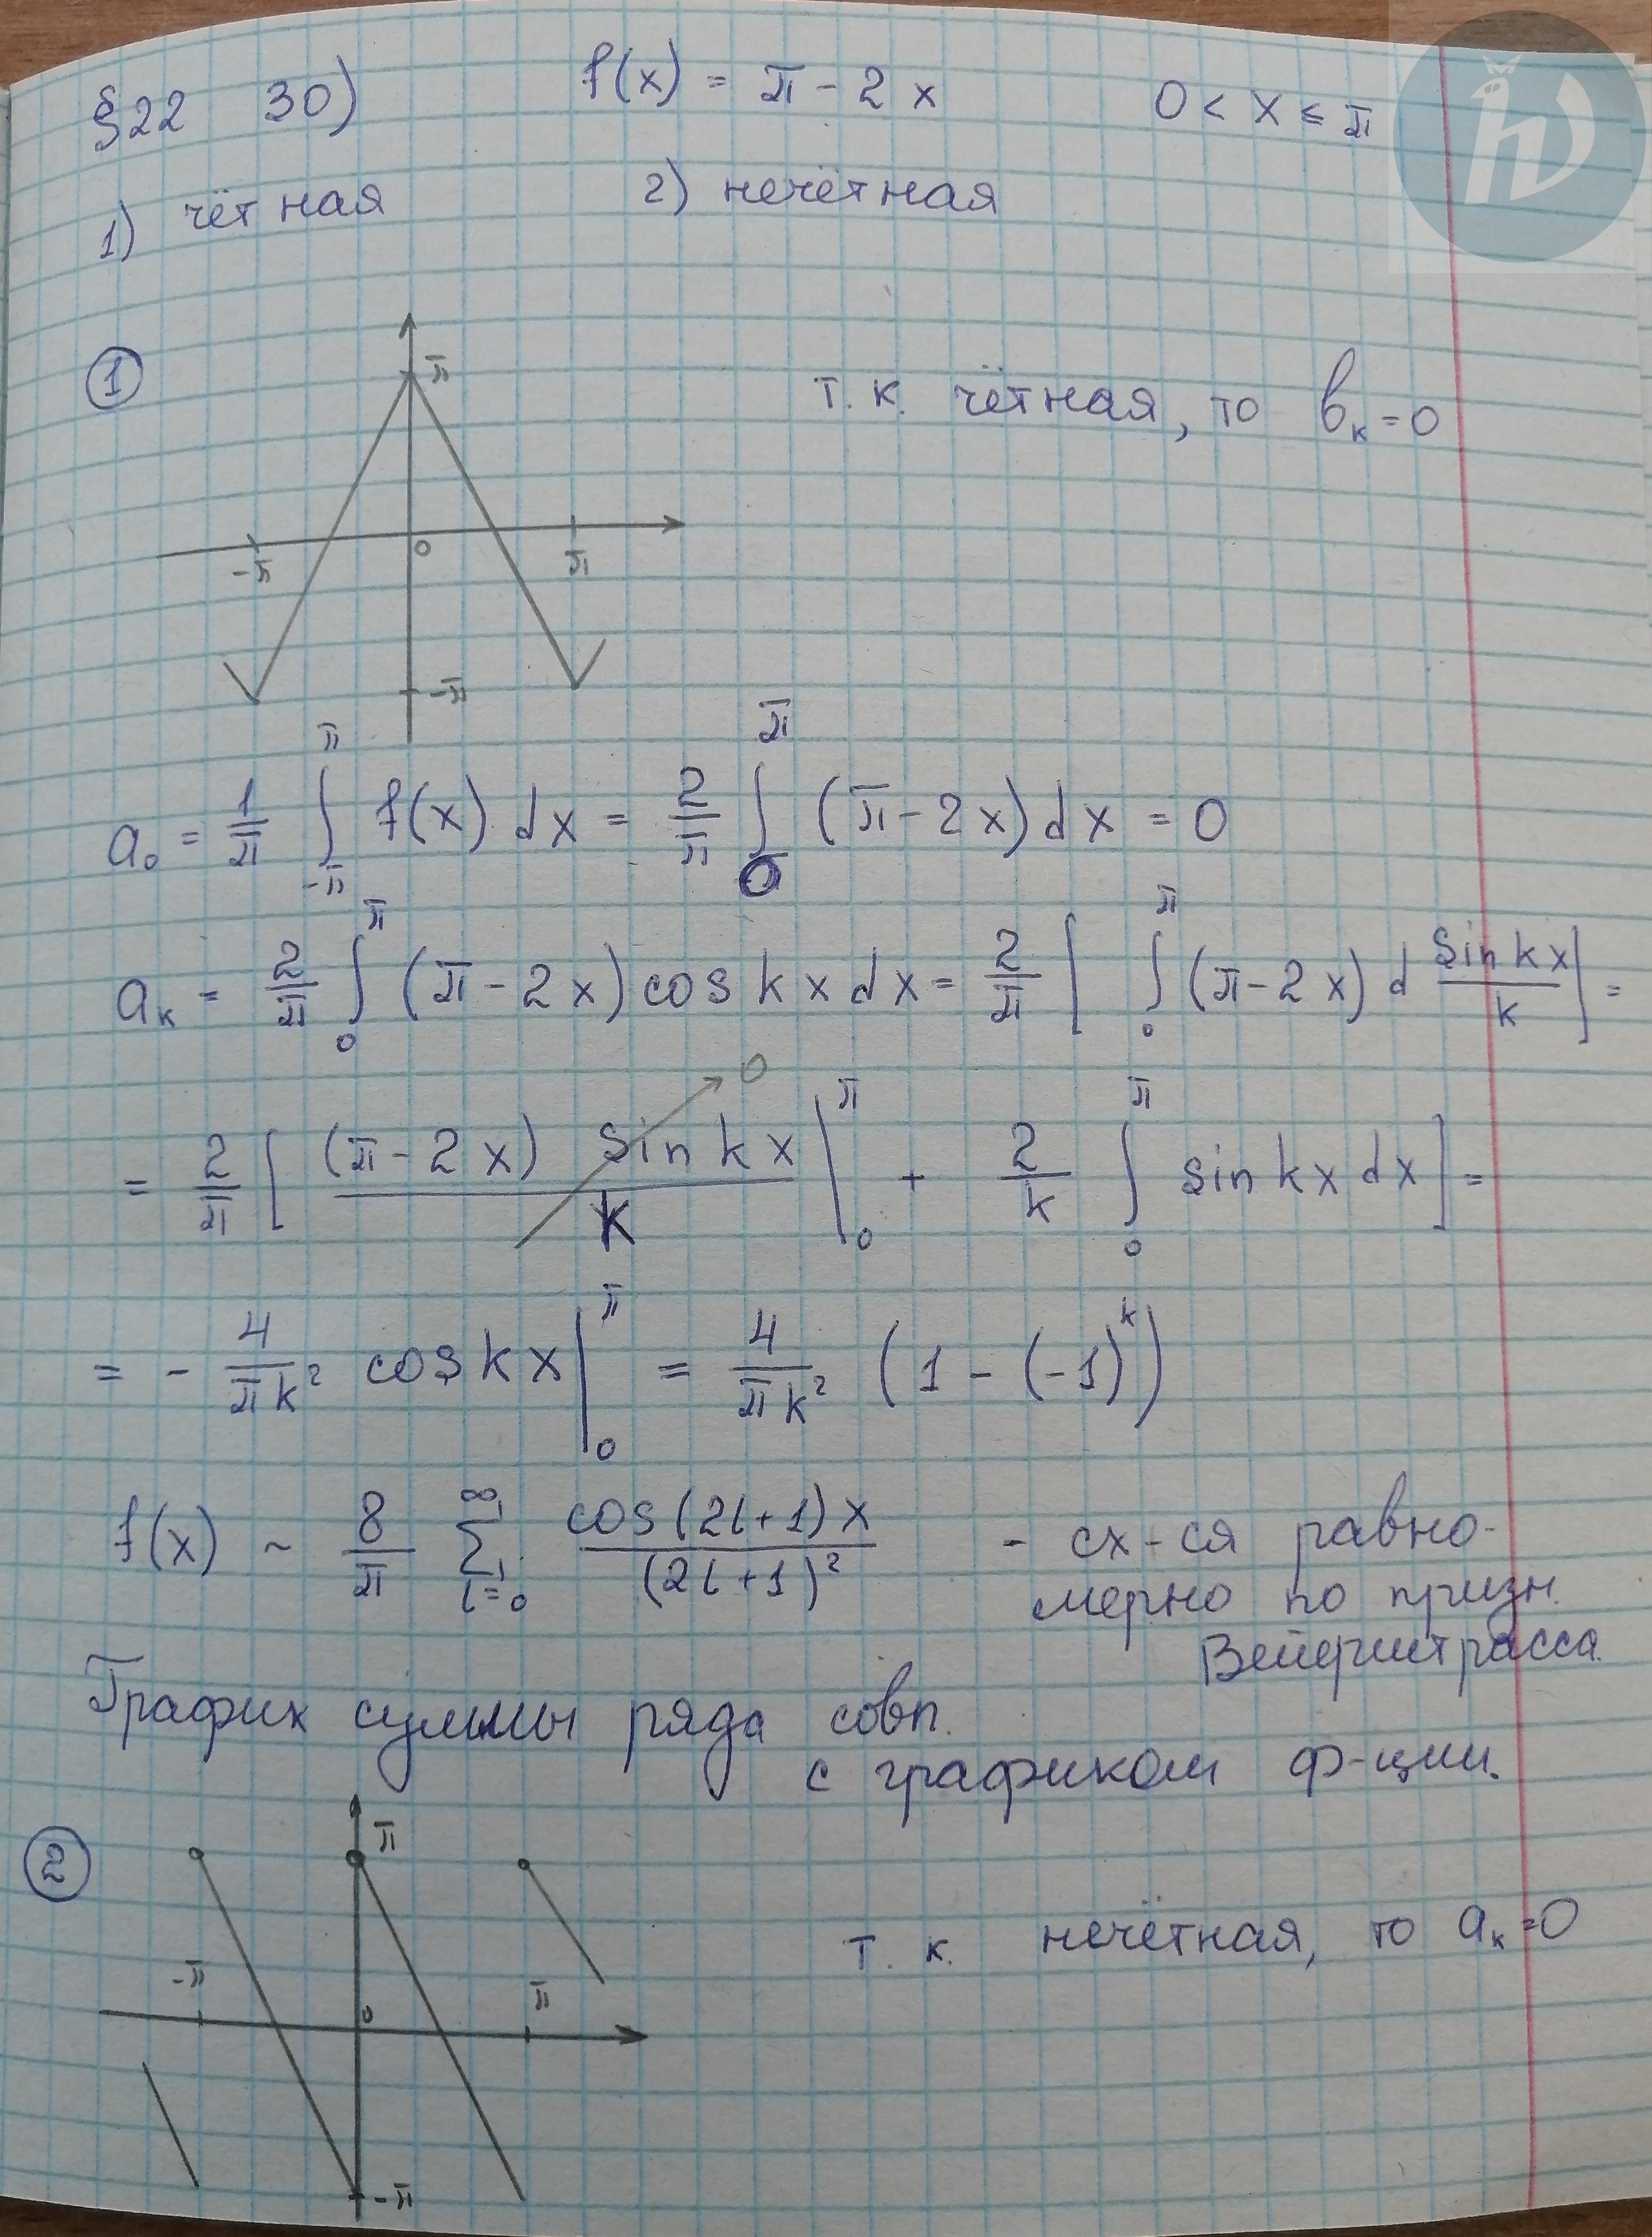 §22 30) f(x) = π - 2x 0 < x ≤ π
1) чётная 2) нечётная
1
π
т.к. чётная, то b_k = 0
-π 0 π
-π
a_0 = 1/π ∫_{-π}^{π} f(x) dx = 2/π ∫_0^π (π - 2x) dx = 0
a_k = 2/π ∫_0^π (π - 2x) cos kx dx = 2/π [ ∫_0^π (π - 2x) d sin kx / k ] =
= 2/π [ (π - 2x) sin kx / k |_0^π → 0 + 2/k ∫_0^π sin kx dx ] =
= - 4/(πk²) cos kx |_0^π = 4/(πk²) (1 - (-1)^k)
f(x) ~ 8/π ∑_{l=0}^∞ cos(2l+1)x / (2l+1)² - сх-ся равно-
мерно по призн.
Вейерштрасса.
График суммы ряда совп.
с графиком ф-ции.
2
π
т.к. нечётная, то a_k = 0
-π 0 π
-π